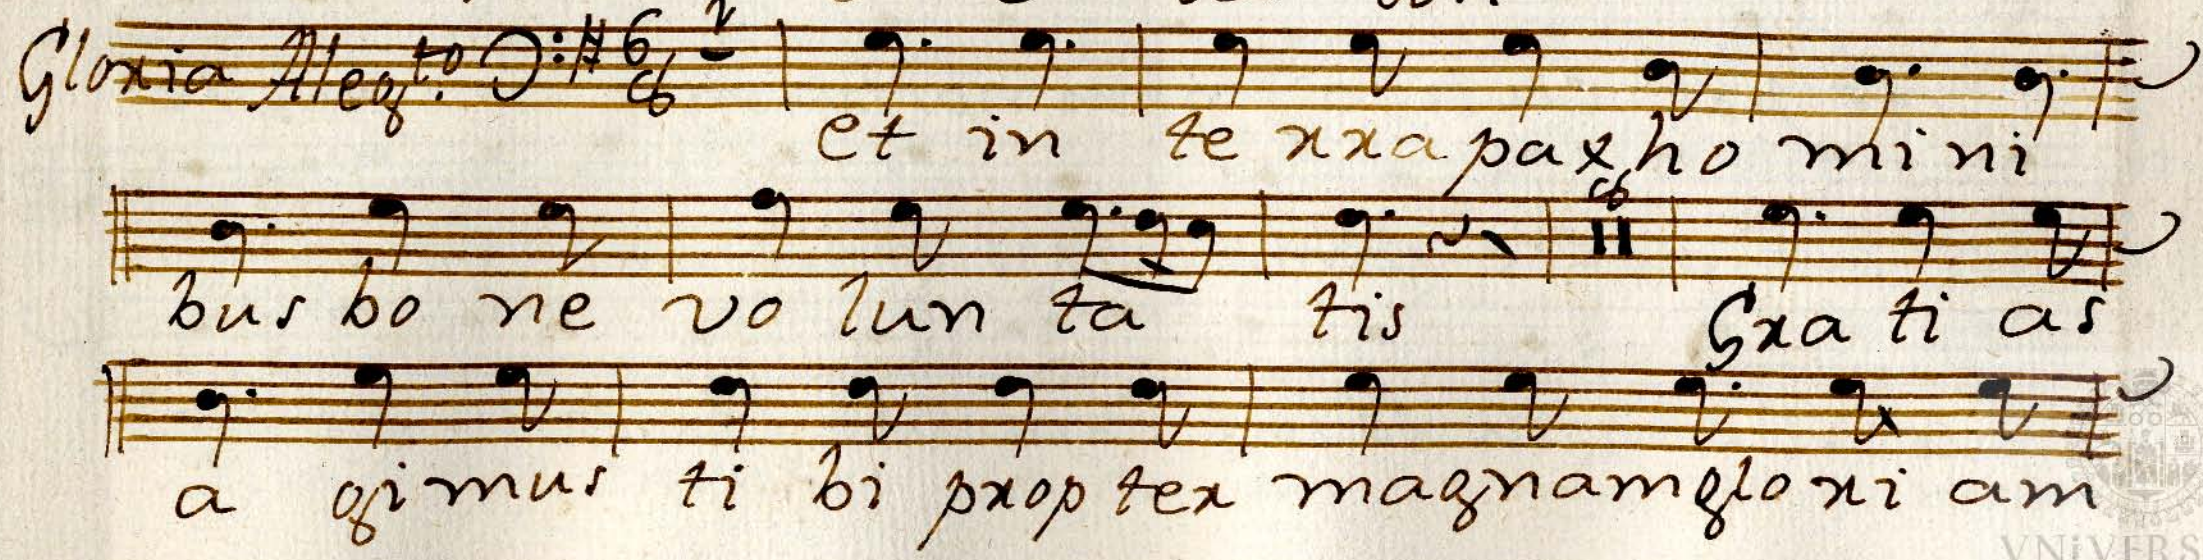 Gloria Aleg.to 6 8 1
et in te rra pax ho mi ni
8
bus bo ne vo lun ta tis Gra ti as
a gi mus ti bi prop ter magnam glo ri am
VNiVERS